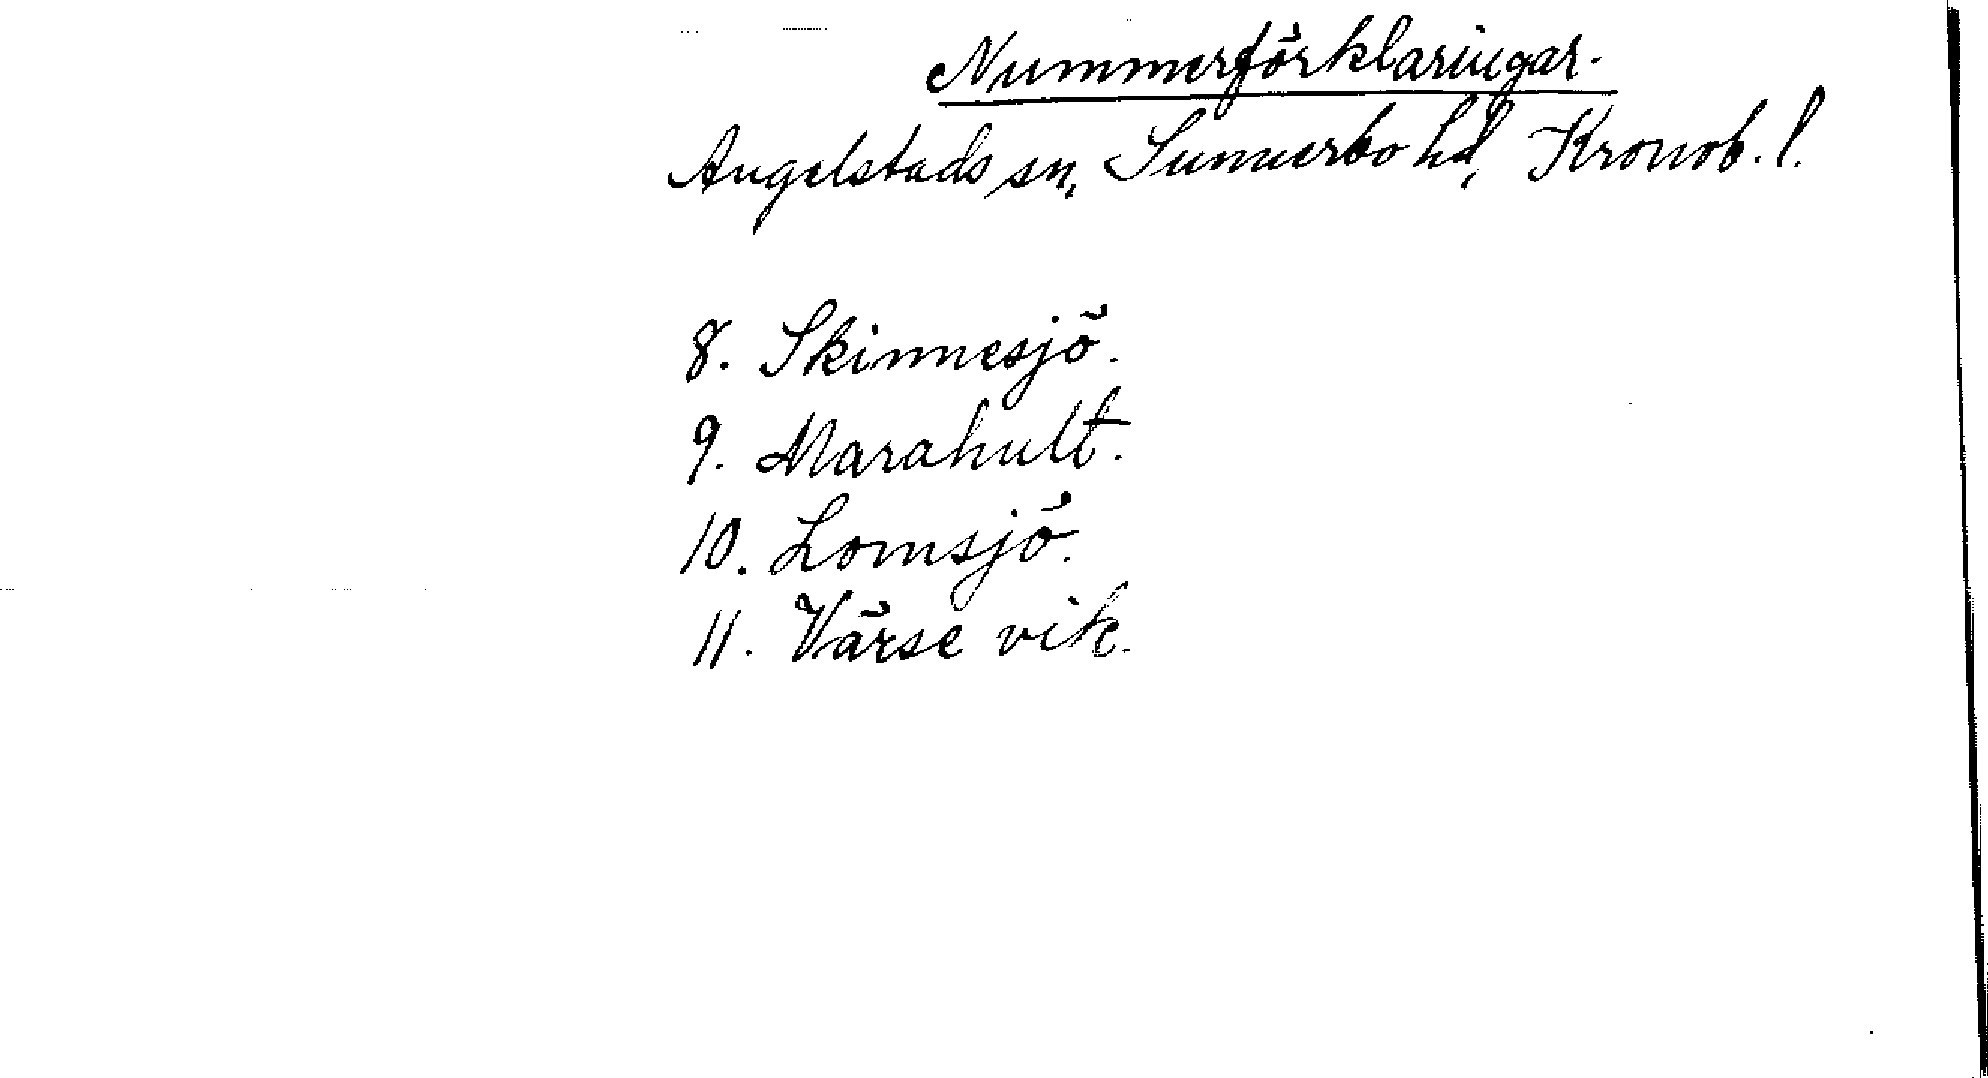 Nummerförklaringar.
Angelstads sn, Sunnerbo hd, Kronob. l.
8. Skinnesjö.
9. Marahult.
10. Lomsjö.
11. Värse vik.